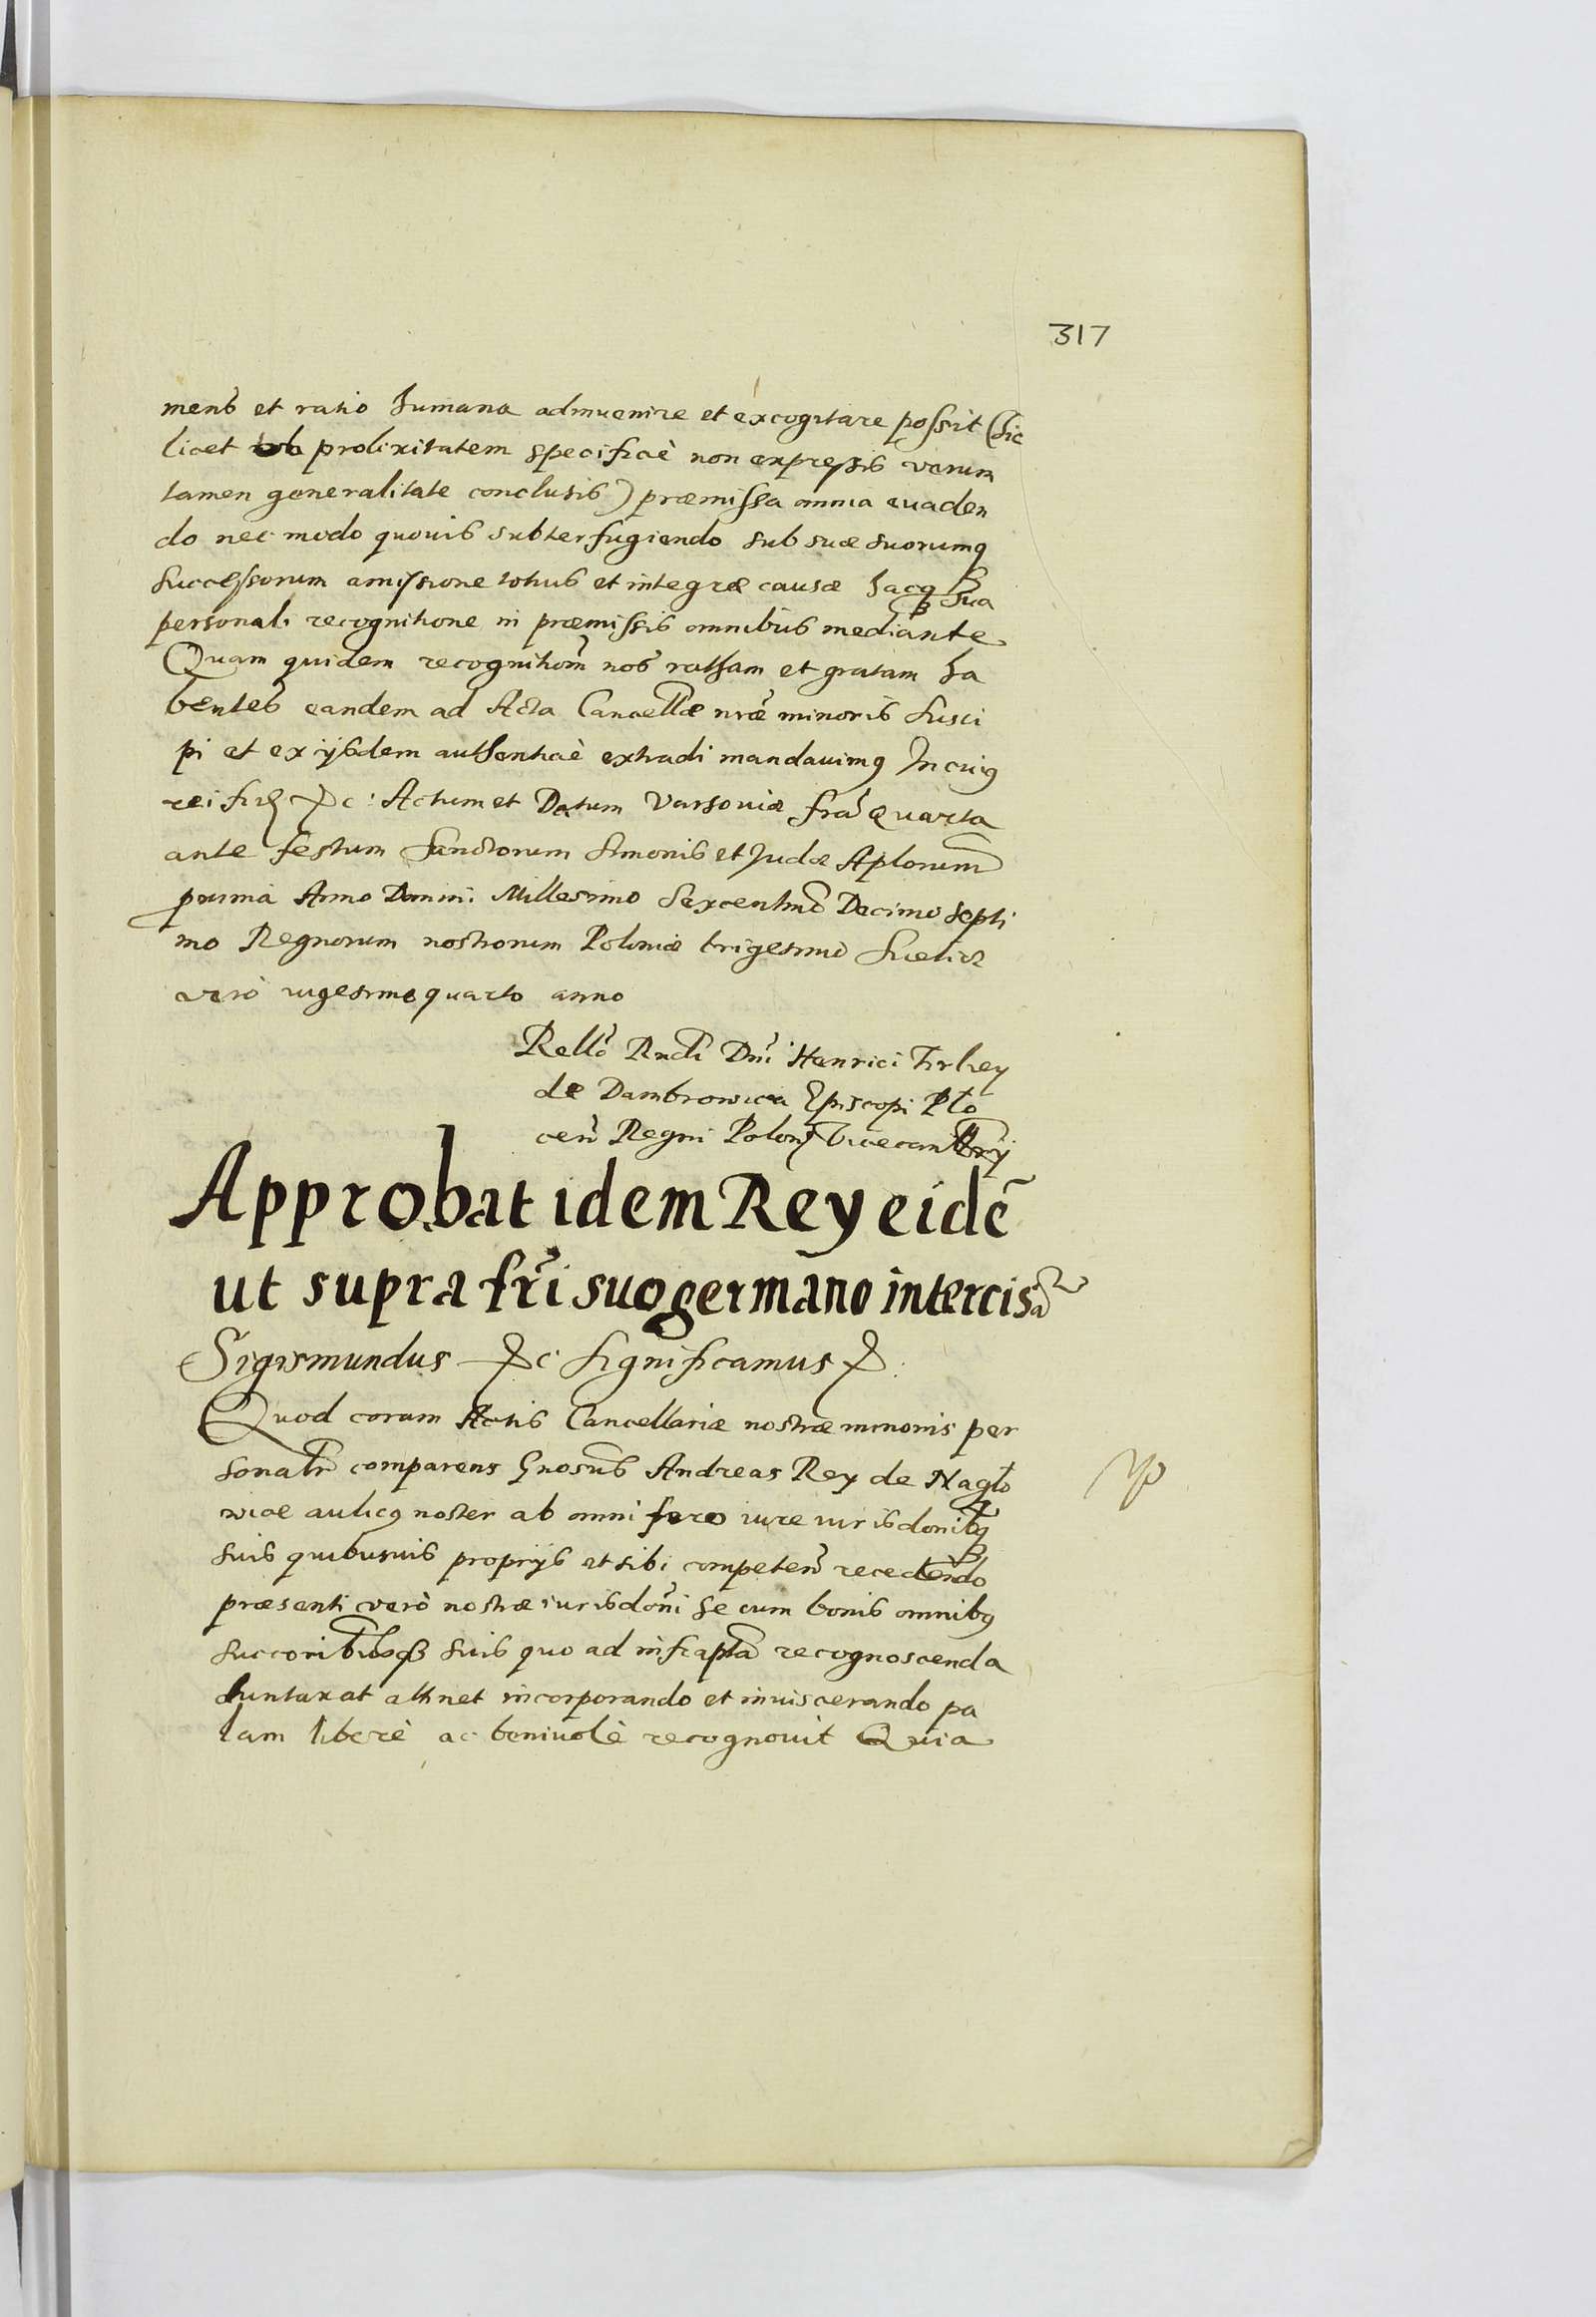 317
mens et ratio humana adinuenire et excogitare possit (hic
licet ob prolixitatem specificè non expressis verum
tamen generalitate conclusis) præmissa omnia euaden
do nec modo quouis subterfugiendo sub suæ suorumq
successorum amissione totius et integræ causæ hacq sua
personali recognitione in præmissis omnibus mediante
Quam quidem recognitiom̃ nos ratham et gratam ha
bentes eandem ad Acta Cancellæ nr̃æ minoris susci
pi et ex ijsdem authenticè extradi mandauimq In cuiq
rei fid̃ &c: Actum et Datum Varsouiæ fr̃a Quarta
ante festum Sanctorum Simonis et Judæ Aplorum
proxima Anno Domini Millesimo Sexcentmo Decimo septi
mo Regnorum nostrorum Poloniæ trigesimo Sueticæ
verò vigesimoquarto anno
Rello Rndi Dn̄i Henrici Firley
de Dambrowica Episcopi Plo
cen̄ Regni Polon̄ Vicecanllrij
Approbat idem Rey eidē
ut supra fr̃i suo germano intercisã
Sigismundus &c significamus &
Quod coram Actis Cancellariæ nostræ minoris per
sonalr comparens Gnosus Andreas Rey de Naglo
wice aulicq noster ab omni foro iure iurisdonibq
suis quibusuis proprijs et sibi competen̄ recedendo
præsenti verò nostræ iurisdon̄i se cum bonis omnibq
succoribusq suis quo ad infrapta recognoscenda
duntaxat attinet incorporando et inuiscerando pa
lam liberè ac beniuolè recognouit Quia